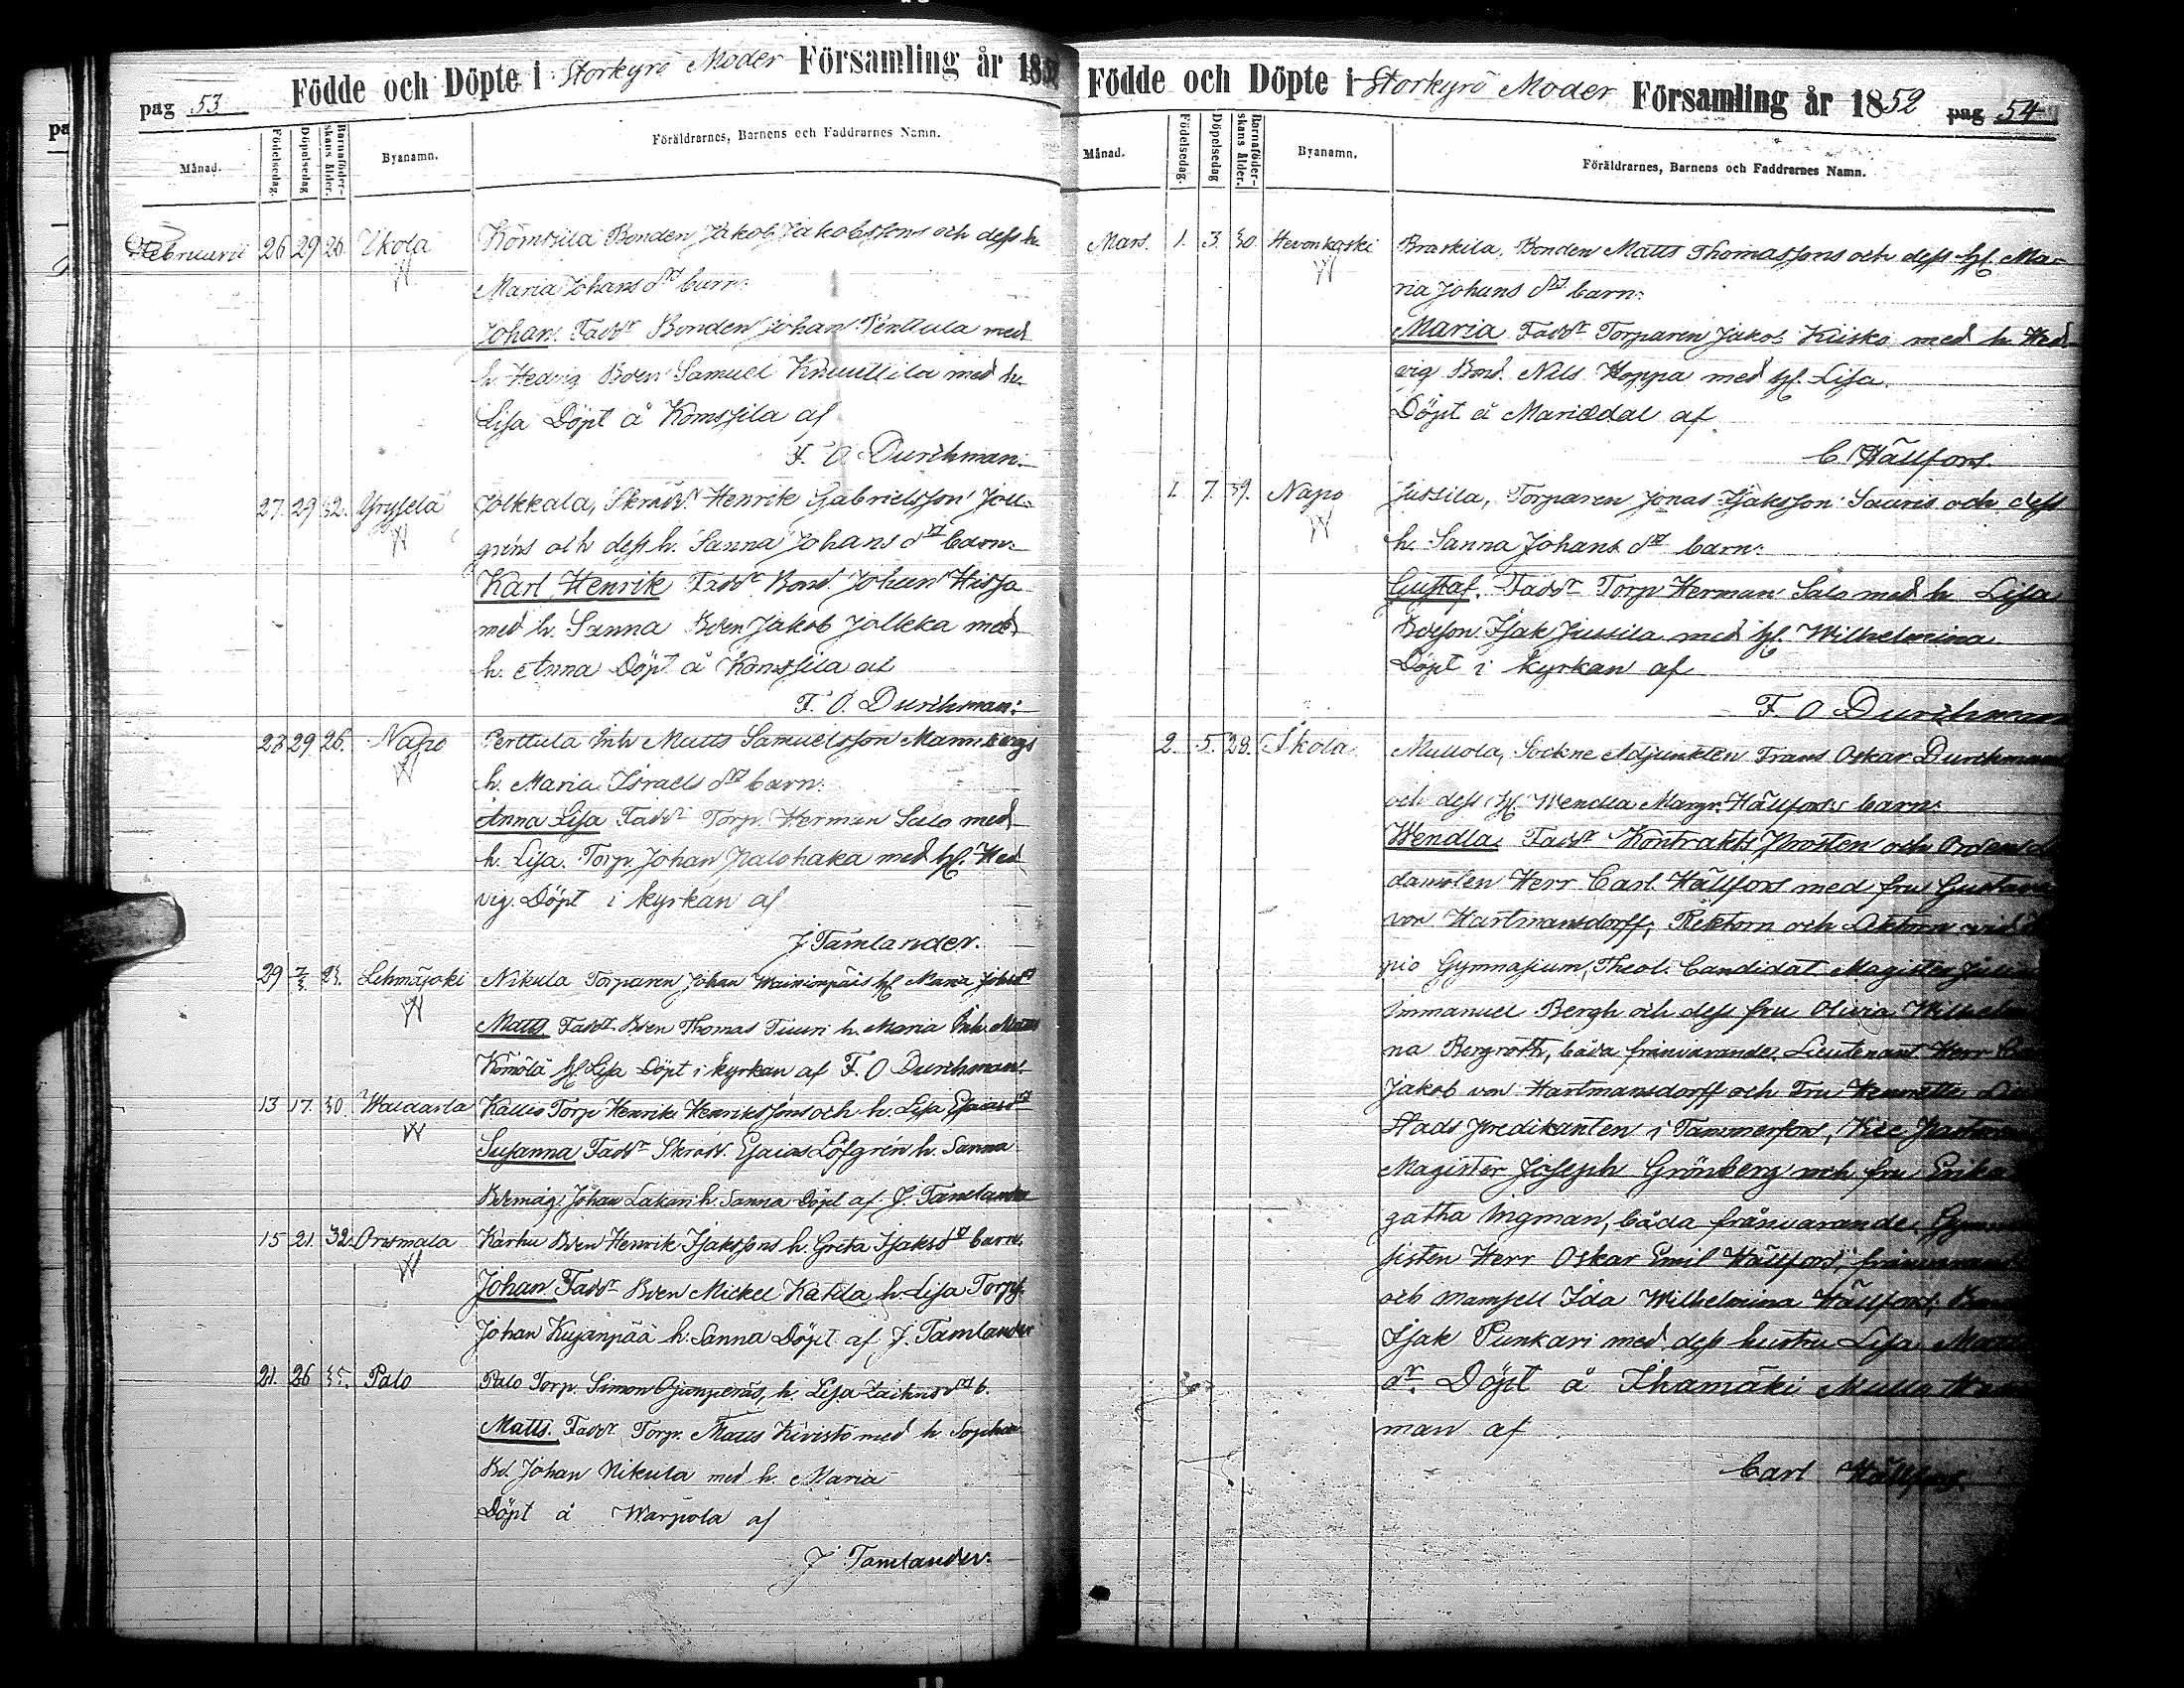 pag 53 Födde och Döpte i Storkyro Moder Församling år 185
Månad. Födelsedag. Döpelsedag Barnaföderskans ålder. Byanamn. Föräldrarnes, Barnens och Faddrarnes Namn.
Februarii 26 29 26. Ikola Bonden Jakob Jakobssons och dess h.
Maria Johans dr barn:
Johan. Faddr Bonden Johan Penttula med
h. Hedvig Bden Samuel Knuuttila med h.
Lisa Döpt å Komsila af
F. O. Durchman.
27. 29 32. Yryselä Jolkkala, Skrädd. Henrik Gabrielsson Joll-
grens och dess h. Sanna Johans dr barn:
Karl Henrik Faddr Bond. Johan Hissa
med h. Sanna Bden Jakob Jolkka med
h. Anna Döpt å Komsila af
F. O. Durchman:
23 29. 26. Napo Perttula Inh Matts Samuelsson Mannbergs
h. Maria Israels dr barn:
Anna Lisa Faddr Torp. Herman Salo med
h. Lisa. Torp. Johan Palohaka med h. Hed
vig. Döpt i kyrkan af
J. Tamlander.
29 7/3 23. Lehmäjoki Nikula Torparen Johan Wainionpäis h. Maria Johsdr
Matts Faddr Bden Thomas Tuuri h. Maria Inh. Matts
Kömölä h. Lisa Döpt i kyrkan af F. O Durchman.
13 17. 30. Waldarla Kallio Torp Henrik Henrikssons och h. Lisa Esaiasdr
Susanna Faddr Skrädd. Esaias Löfgrén h. Sanna
Bdemåg. Johan Lakari h. Sanna Döpt af J. Tamlander
15 21. 32. Orismala Karhu Bden Henrik Isakssons h. Greta Isaksdr barn.
Johan. Faddr Bden Mickel Katila h. Lisa Torps.
Johan Kujanpää h. Sanna Döpt af J. Tamlander
21. 26 35. Palo Palo Torp. Simon Ojanperäs, h. Lisa Zachrisdr b.
Matts. Faddr Torp. Matts Kivistö med h. Sophia
Bd. Johan Nikula med h. Maria
Döpt å Warpola af
J Tamlander.
Födde och Döpte i Storkyrö Moder Församling år 1852 pag 54
Månad. Födelsedag. Döpelsedag Barnaföderskans ålder. Byanamn. Föräldrarnes, Barnens och Faddrarnes Namn.
Mars. 1. 3. 30. Hevonkoski Braskila, Bonden Matts Thomassons och dess h. Ma-
ria Johans dr barn:
Maria Faddr Torparen Jakob Kuisko med h. Hed-
vig Bond. Nils Hoppa med h. Lisa.
Döpt å Mariedal af
C. Hällfors.
1. 7. 39. Napo Jussila, Torparen Jonas Isaksson Sauris och dess
h. Sanna Johans dr barn:
Gustaf. Faddr Torp Herman Salo med h. Lisa
Bdeson Isak Jussila med h. Wilhelmina.
Döpt i kyrkan af
F. O Durchman
2. 5. 28. Ikola Mullola, Sockne Adjunkten Frans Oskar Durchmans
och dess h. Wendla Margr. Hällfors barn:
Wendla. Faddr Kontrakts Prosten och Ordens Le
damoten Herr Carl Hällfors med fru Gustava
von Hartmansdorff, Rektorn och Lektorn vid
pio Gymnasium, Theol. Candidat Magister Julius
Immanuel Bergh och dess fru Olivia Wilhelmi
na Bergroth, båda frånvarande, Lieutenant Herr
Jakob von Hartmansdorff och Fru Henriette
Stads predikanten i Tammerfors, Vice Pastorn
Magister Joseph Grönberg och fru Erika
gatha Ingman, båda frånvarande. Gymna
sisten Herr Oskar Emil Hällfors, frånvarande
och Mamsell Ida Wilhelmina Hällfors.
Isak Punkari med dess hustru Lisa
dr. Döpt å Ihamäki Mulla
man af
Carl Hällfors.